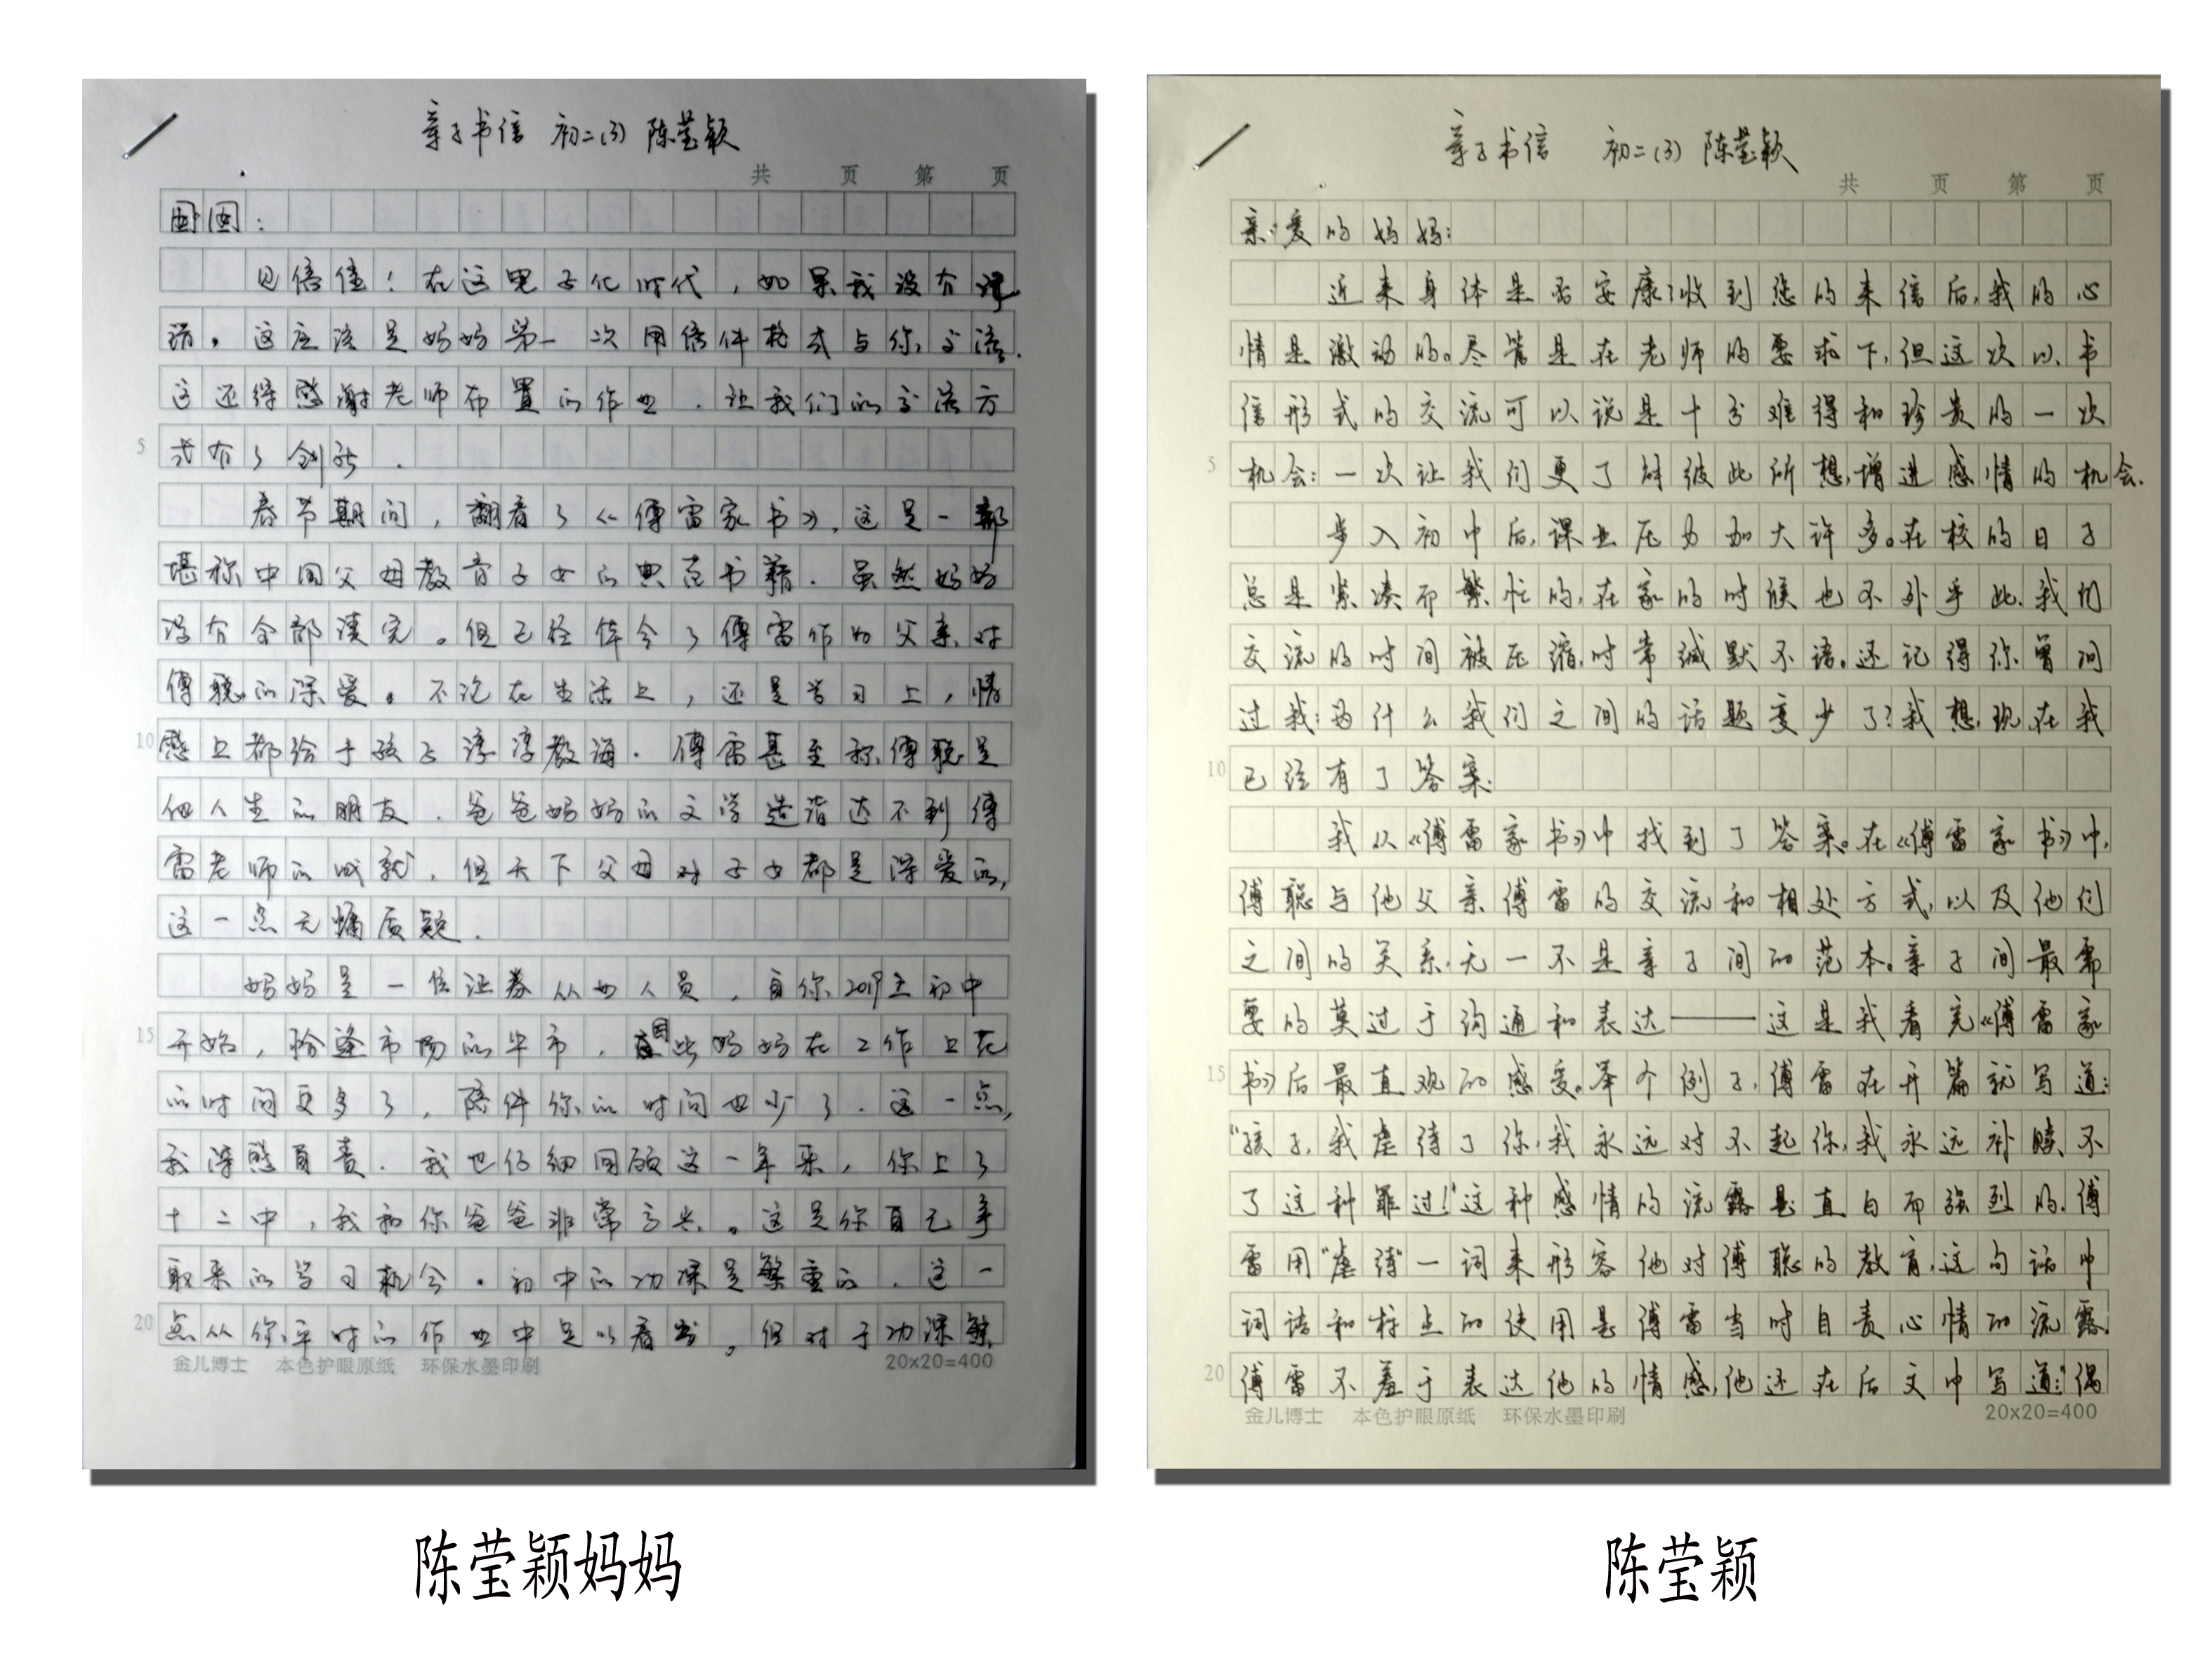 亲子书信 初二(3) 陈莹颖
共 页 第 页
囡囡:
见信佳!在这电子化时代,如果我没有记
错。这应该是妈妈第一次用信件格式与你交流.
这还得感谢老师布置的作业.让我们的交流方
5 式有了创新.
春节期间,翻看了《傅雷家书》,这是一部
堪称中国父母教育子女的典范书籍.虽然妈妈
没有全部读完。但已经体会了傅雷作为父亲对
傅聪的深爱。不论在生活上,还是学习上,情
10 感上都给予孩子谆谆教诲.傅雷甚至称傅聪是
他人生的朋友.爸爸妈妈的文学造诣达不到傅
雷老师的成就,但天下父母对子女都是深爱的,
这一点无慵质疑.
妈妈是一位证券从业人员,自你2019上初中
15 开始,恰逢市场的牛市,因此妈妈在工作上花
的时间更多了,陪伴你的时间也少了.这一点,
我深感自责.我也仔细回顾这一年来,你上了
十二中,我和你爸爸非常高兴。这是你自己争
取来的学习机会.初中的功课是繁重的,这一
20 点从你平时的作业中足以看出。但对于功课繁
金儿博士 本色护眼原纸 环保水墨印刷 20x20=400
陈莹颖妈妈
亲子书信 初二(3) 陈莹颖
共 页 第 页
亲爱的妈妈:
近来身体是否安康?收到您的来信后,我的心
情是激动的。尽管是在老师的要求下,但这次以书
信形式的交流可以说是十分难得和珍贵的一次
5 机会:一次让我们更了解彼此所想,增进感情的机会.
步入初中后,课业压力加大许多。在校的日子
总是紧凑而繁忙的,在家的时候也不外乎此.我们
交流的时间被压缩,时常缄默不语。还记得你曾问
过我:为什么我们之间的话题变少了?我想,现在我
10 已经有了答案.
我从《傅雷家书》中找到了答案。在《傅雷家书》中,
傅聪与他父亲傅雷的交流和相处方式,以及他们
之间的关系,无一不是亲子间的范本。亲子间最需
要的莫过于沟通和表达——这是我看完《傅雷家
15 书》后最直观的感受。举个例子,傅雷在开篇就写道:
“孩子,我虐待了你,我永远对不起你,我永远补赎不
了这种罪过!”这种感情的流露是直白而强烈的.傅
雷用“虐待”一词来形容他对傅聪的教育,这句话中
词语和标点的使用是傅雷当时自责心情的流露.
20 傅雷不羞于表达他的情感,他还在后文中写道:“偶
金儿博士 本色护眼原纸 环保水墨印刷 20x20=400
陈莹颖